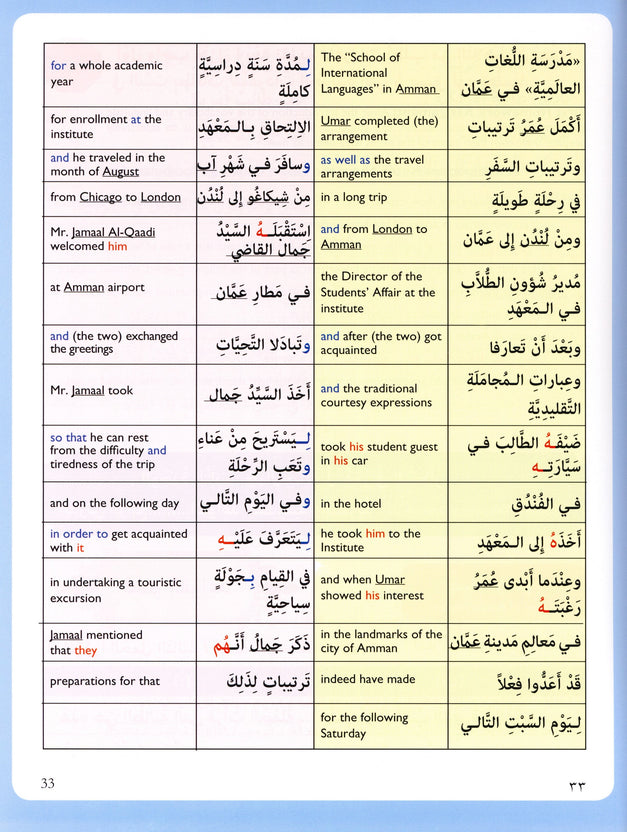 «مَدْرَسَةِ اللُّغاتِ
العالَمِيَّةِ» فـي عَمَّان
The “School of
International
Languages” in Amman
لِـمُدَّةِ سَنَةٍ دِراسِيَّةٍ
كامِلَةٍ
for a whole academic
year
أَكْمَلَ عُمَرُ تَرتيباتِ
Umar completed (the)
arrangement
الِالتِحاقِ بِـالـمَعْهَدِ
for enrollment at the
institute
وتَرتيباتِ السَّفَرِ
as well as the travel
arrangements
وسافَرَ فـي شَهْرِ آب
and he traveled in the
month of August
في رِحْلَةٍ طَويلَةٍ
in a long trip
مِنْ شِيكاغُو إلى لُنْدُن
from Chicago to London
ومِنْ لُنْدُن إلى عَمَّان
and from London to
Amman
اِسْتَقْبَلَـهُ السَّيِّدُ
جَمال القاضي
Mr. Jamaal Al-Qaadi
welcomed him
مُديرُ شُؤونِ الطُّلاَّبِ
فـي الـمَعْهَدِ
the Director of the
Students’ Affair at the
institute
فـي مَطارِ عَمَّان
at Amman airport
وبَعْدَ أَنْ تَعارَفا
and after (the two) got
acquainted
وتَبادَلا التَّحِيَّاتِ
and (the two) exchanged
the greetings
وعِباراتِ الـمُجامَلَةِ
التَّقليدِيَّةِ
and the traditional
courtesy expressions
أَخَذَ السَّيِّدُ جَمال
Mr. Jamaal took
ضَيْفَـهُ الطَّالِبَ فـي
سَيَّارَتـهِ
took his student guest
in his car
لِـيَسْتَريحَ مِنْ عَناءِ
وتَعَبِ الرِّحْلَةِ
so that he can rest
from the difficulty and
tiredness of the trip
فـي الفُنْدُقِ
in the hotel
وفـي اليَوْمِ التَّالـي
and on the following day
أَخَذَهُ إلى الـمَعْهَدِ
he took him to the
Institute
لِـيَتَعَرَّفَ عَلَيْـهِ
in order to get acquainted
with it
وعِنْدَما أَبْدى عُمَرُ
رَغْبَتَـهُ
and when Umar
showed his interest
في القِيامِ بِـجَوْلَةٍ
سِياحِيَّةٍ
in undertaking a touristic
excursion
فـي مَعالِمِ مَدينةِ عَمَّان
in the landmarks of the
city of Amman
ذَكَرَ جَمالُ أَنَّـهُم
Jamaal mentioned
that they
قَدْ أَعَدُّوا فِعْلاً
indeed have made
تَرتيباتٍ لِذَلِكَ
preparations for that
لِـيَوْمِ السَّبْتِ التَّالـي
for the following
Saturday
33
٣٣